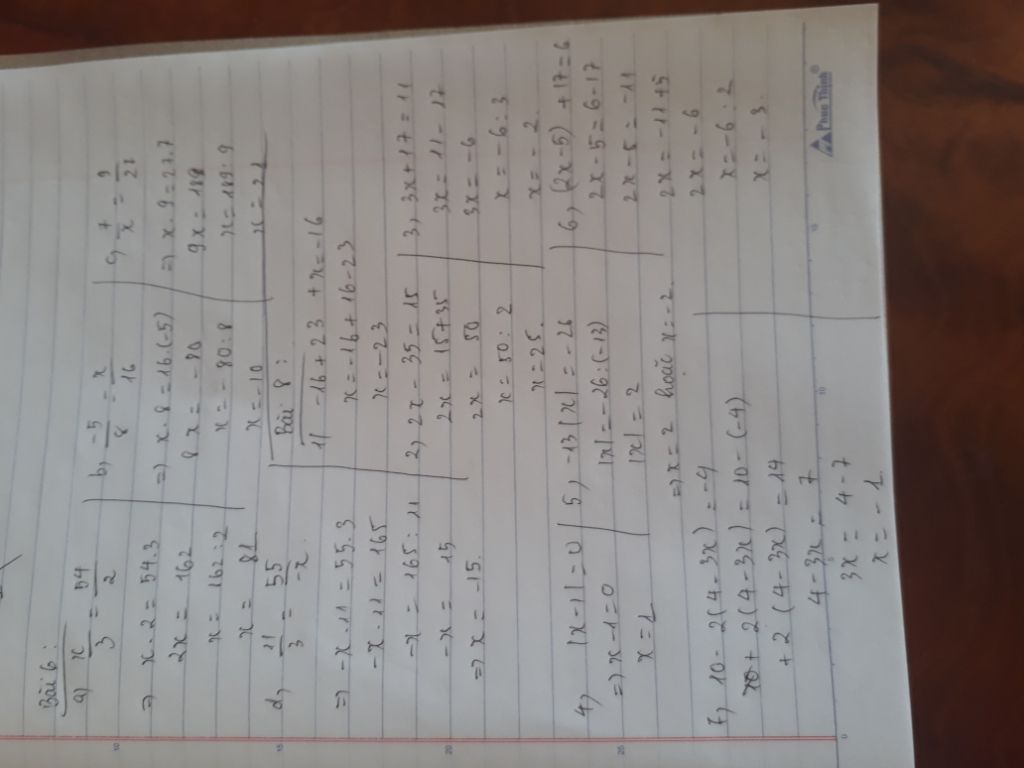 Bài 6:
a) x/3 = 54/2
=> x.2 = 54.3
2x = 162
x = 162:2
x = 81
b, -5/8 = x/16
=> x.8 = 16.(-5)
8x = -80
x = -80:8
x = -10
c, 7/x = 9/27
=> x.9 = 27.7
9x = 189
x = 189:9
x = 21
d, 11/3 = 55/-x
=> -x.11 = 55.3
-x.11 = 165
-x = 165:11
-x = 15
=> x = -15.
Bài: 8:
1) -16 + 23 + x = -16
x = -16 + 16 - 23
x = -23
2) 2x - 35 = 15
2x = 15+35
2x = 50
x = 50:2
x = 25.
3, 3x + 17 = 11
3x = 11 - 17
3x = -6
x = -6:3
x = -2.
4) |x-1| = 0
=> x - 1 = 0
x = 1
5, -13|x| = -26
|x| = -26:(-13)
|x| = 2
=> x = 2 hoặc x = -2.
6, (2x-5) + 17 = 6
2x - 5 = 6 - 17
2x - 5 = -11
2x = -11 + 5
2x = -6
x = -6:2
x = -3.
7, 10 - 2(4-3x) = -4
2(4-3x) = 10 - (-4)
+2(4-3x) = 14
4 - 3x = 7
3x = 4 - 7
x = -1
Phong Thịnh